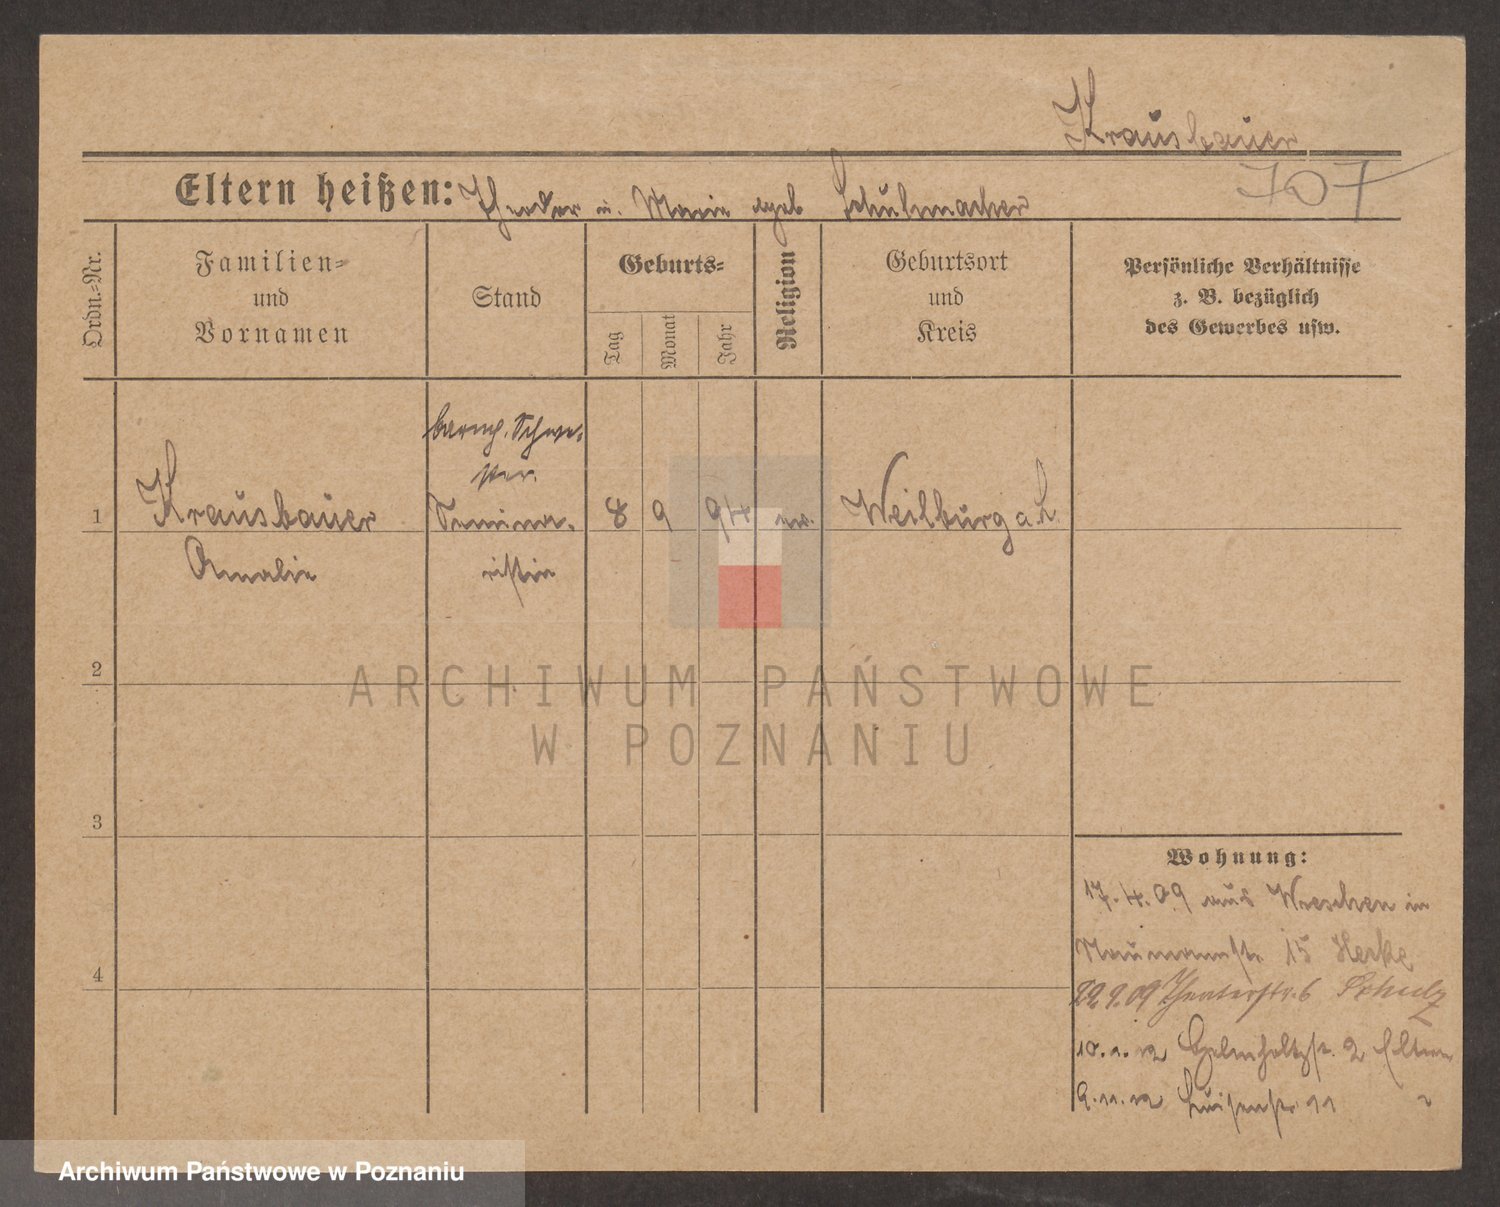 Krausbauer
707
Eltern heißen: Theodor u. Marie geb Schuhmacher
Ordn.-Nr.
Familien-
und
Vornamen
Stand
Geburts-
Tag
Monat
Jahr
Religion
Geburtsort
und
Kreis
Persönliche Verhältnisse
z. B. bezüglich
des Gewerbes usw.
barmh. Schwe-
ster.
1 Krausbauer Semina- 8 9 94 ev. Weilburg a. L.
Amalie ristin
2
3
4
Wohnung:
17.4.09 aus Wreschen in
Naumannstr. 15 Herke
29.9.09 Theaterstr. 6 Schulz
10.1.12 Helmholtzstr. 2 Eltern
9.11.12 Luisenstr. 11 "
ARCHIWUM PAŃSTWOWE
W POZNANIU
Archiwum Państwowe w Poznaniu